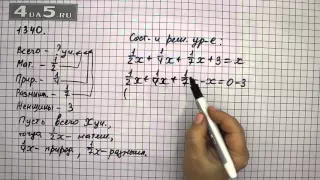 4AU5.RU
1340.
Всего - ? уч.
Мат. - 1/2
Прир. - 1/4
Размыш. - 1/7
Женщины - 3
Пусть всего x уч.,
тогда 1/2x - матем.,
1/4x - природ, 1/7x - размыш.
Сост. и реш. ур-е:
1/2x + 1/4x + 1/7x + 3 = x
1/2x + 1/4x + 1/7x - x = 0 - 3
(